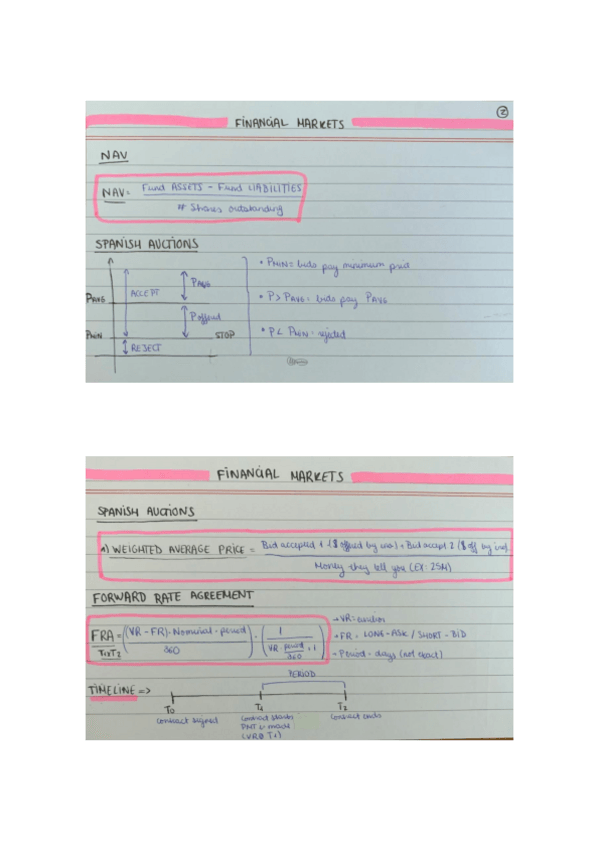 2
FINANCIAL MARKETS
NAV
NAV = Fund ASSETS - Fund LIABILITIES
# Shares outstanding
SPANISH AUCTIONS
PAVG
ACCEPT
PAVG
Poffered
PMIN
STOP
REJECT
• PMIN = bids pay minimum price
• P > PAVG = bids pay PAVG
• P < PMIN = rejected
FINANCIAL MARKETS
SPANISH AUCTIONS
1) WEIGHTED AVERAGE PRICE = Bid accepted 1 ($ offered by inv) + Bid accept 2 ($ off by inv)
Money they tell you (EX: 25M)
FORWARD RATE AGREEMENT
FRA = ((VR - FR) · Nominal · period) · (1
T1xT2 360 VR · period + 1)
360
→ VR = euribor
→ FR = LONG - ASK / SHORT - BID
→ Period = days (not exact)
PERIOD
TIMELINE =>
T0 T1 T2
contract signed
Contract starts
PMT is made
(VR @ T1)
Contract ends